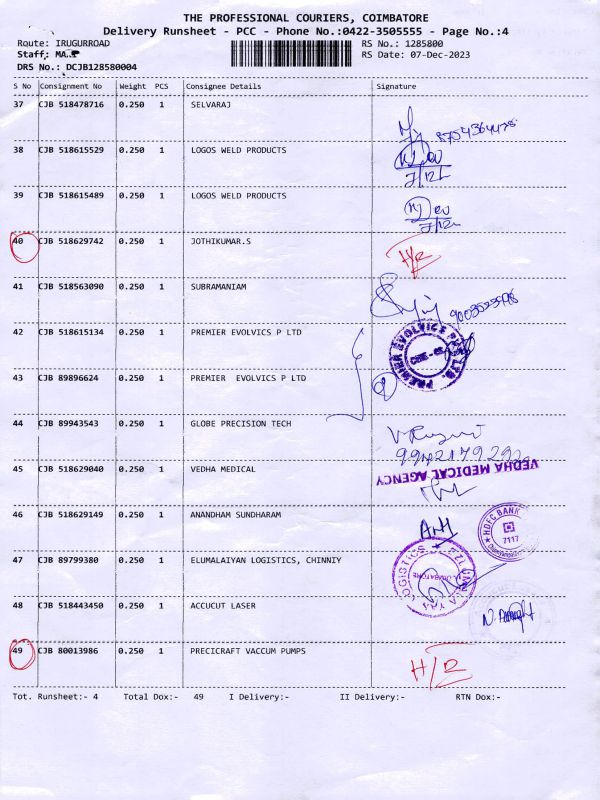 THE PROFESSIONAL COURIERS, COIMBATORE
Delivery Runsheet - PCC - Phone No.:0422-3505555 - Page No.:4
Route: IRUGURROAD
RS No.: 1285800
Staff: MA
RS Date: 07-Dec-2023
DRS No.: DCJB128580004
S No Consignment No Weight PCS Consignee Details Signature
37 CJB 518478716 0.250 1 SELVARAJ
8754364478
38 CJB 518615529 0.250 1 LOGOS WELD PRODUCTS
7/12
39 CJB 518615489 0.250 1 LOGOS WELD PRODUCTS
7/12
40 CJB 518629742 0.250 1 JOTHIKUMAR.S H/R
41 CJB 518563090 0.250 1 SUBRAMANIAM
42 CJB 518615134 0.250 1 PREMIER EVOLVICS P LTD
PREMIER EVOLVICS PVT LTD.
43 CJB 89896624 0.250 1 PREMIER  EVOLVICS P LTD
44 CJB 89943543 0.250 1 GLOBE PRECISION TECH
45 CJB 518629040 0.250 1 VEDHA MEDICAL
VEDHA MEDICAL AGENCY
46 CJB 518629149 0.250 1 ANANDHAM SUNDHARAM
HDFC BANK
7117
47 CJB 89799380 0.250 1 ELUMALAIYAN LOGISTICS, CHINNIY
LOGISTICS
48 CJB 518443450 0.250 1 ACCUCUT LASER
49 CJB 80013986 0.250 1 PRECICRAFT VACCUM PUMPS H/R
Tot. Runsheet:- 4 Total Dox:- 49 I Delivery:- II Delivery:- RTN Dox:-